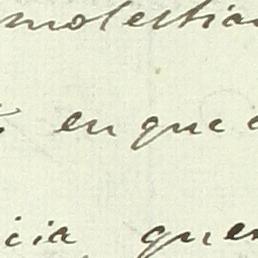 molestia
en que
cia quer